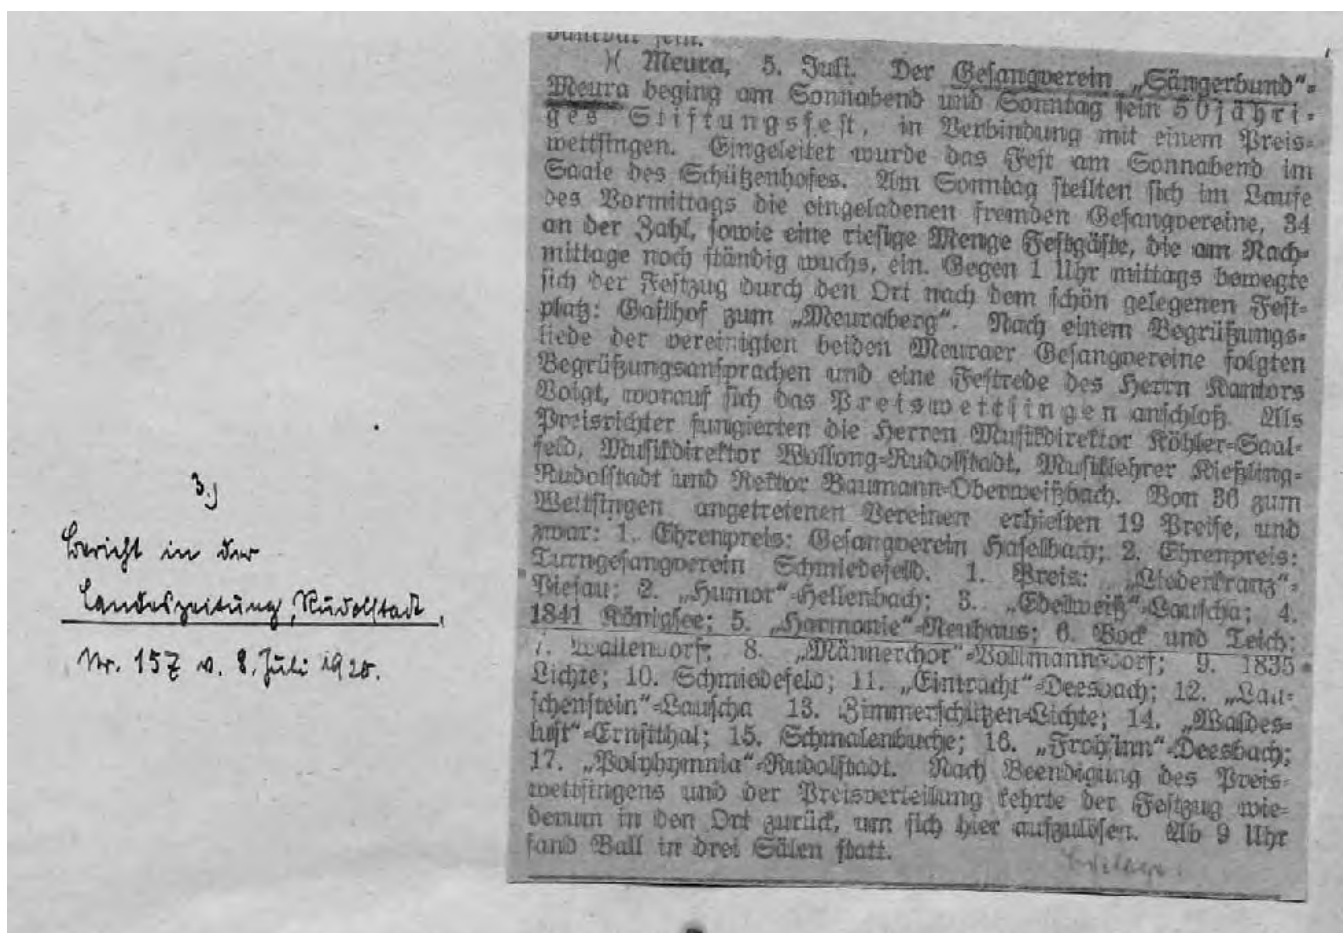 3.)
Bericht in der
Landeszeitung, Rudolstadt,
Nr. 157 v. 8. Juli 1928.
dankbar sein.
)( Meura, 5. Juli. Der Gesangverein „Sängerbund“-
Meura beging am Sonnabend und Sonntag sein 50jähri-
ges Stiftungsfest, in Verbindung mit einem Preis-
wettsingen. Eingeleitet wurde das Fest am Sonnabend im
Saale des Schützenhofes. Am Sonntag stellten sich im Laufe
des Vormittags die eingeladenen fremden Gesangvereine, 34
an der Zahl, sowie eine riesige Menge Festgäste, die am Nach-
mittage noch ständig wuchs, ein. Gegen 1 Uhr mittags bewegte
sich der Festzug durch den Ort nach dem schön gelegenen Fest-
platz: Gasthof zum „Meuraberg“. Nach einem Begrüßungs-
liede der vereinigten beiden Meuraer Gesangvereine folgten
Begrüßungsansprachen und eine Festrede des Herrn Kantors
Voigt, worauf sich das Preiswettsingen anschloß. Als
Preisrichter fungierten die Herren Musikdirektor Köhler-Saal-
feld, Musikdirektor Wollong-Rudolstadt, Musiklehrer Kießling-
Rudolstadt und Rektor Baumann-Oberweißbach. Von 36 zum
Wettsingen angetretenen Vereinen erhielten 19 Preise, und
zwar: 1. Ehrenpreis: Gesangverein Haselbach; 2. Ehrenpreis:
Turngesangverein Schmiedefeld. 1. Preis: „Liederkranz“-
Piesau; 2. „Humor“-Hellenbach; 3. „Edelweiß“-Lauscha; 4.
1841 Königsee; 5. „Harmonie“-Neuhaus; 6. Bock und Teich;
7. Wallendorf; 8. „Männerchor“-Volkmannsdorf; 9. 1835
Lichte; 10. Schmiedefeld; 11. „Eintracht“-Deesbach; 12. „Lau-
schenstein“-Lauscha 13. Zimmerschützen-Lichte; 14. „Waldes-
lust“-Ernstthal; 15. Schmalenbuche; 16. „Frohsinn“-Deesbach;
17. „Polyhymnia“-Rudolstadt. Nach Beendigung des Preis-
wettsingens und der Preisverteilung kehrte der Festzug wie-
derum in den Ort zurück, um sich hier aufzulösen. Ab 9 Uhr
fand Ball in drei Sälen statt.